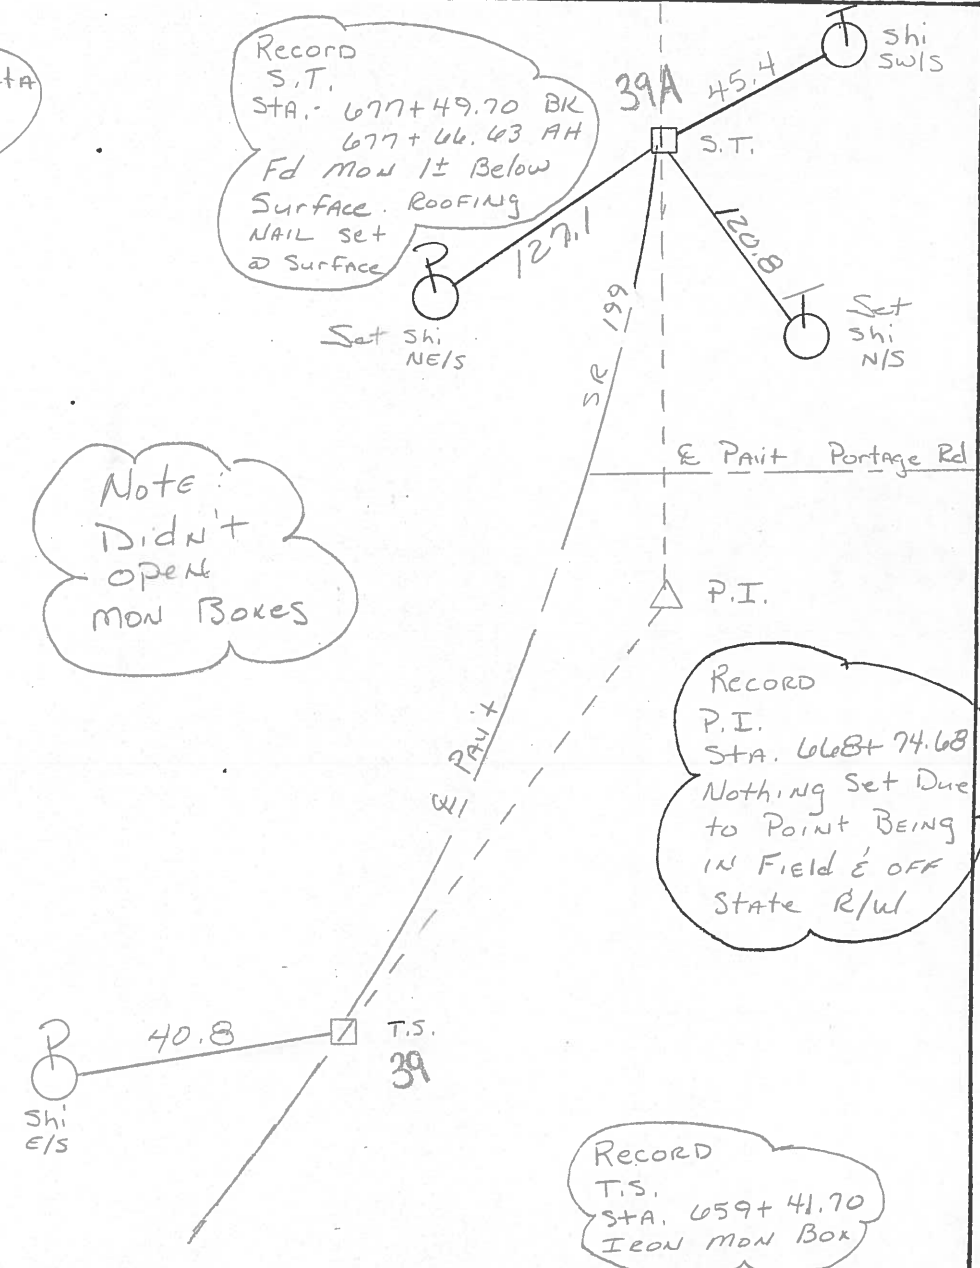 tA
Record
S.T.
StA.- 677+49.70 BK
677+66.63 AH
Fd Mon 1± Below
Surface. Roofing
Nail Set
@ Surface
39A
45.4
Shi
SW/S
S.T.
127.1
120.8
P
Set Shi
NE/S
Set
Shi
N/S
SR 199
℄ Pav't Portage Rd
Note:
Didn't
open
mon Boxes
P.I.
Record
P.I.
StA. 668+74.68
Nothing Set Due
to Point Being
in Field & off
State R/W
℄ Pav't
P
40.8
T.S.
39
Shi
E/S
Record
T.S.
StA. 659+41.70
Iron Mon Box